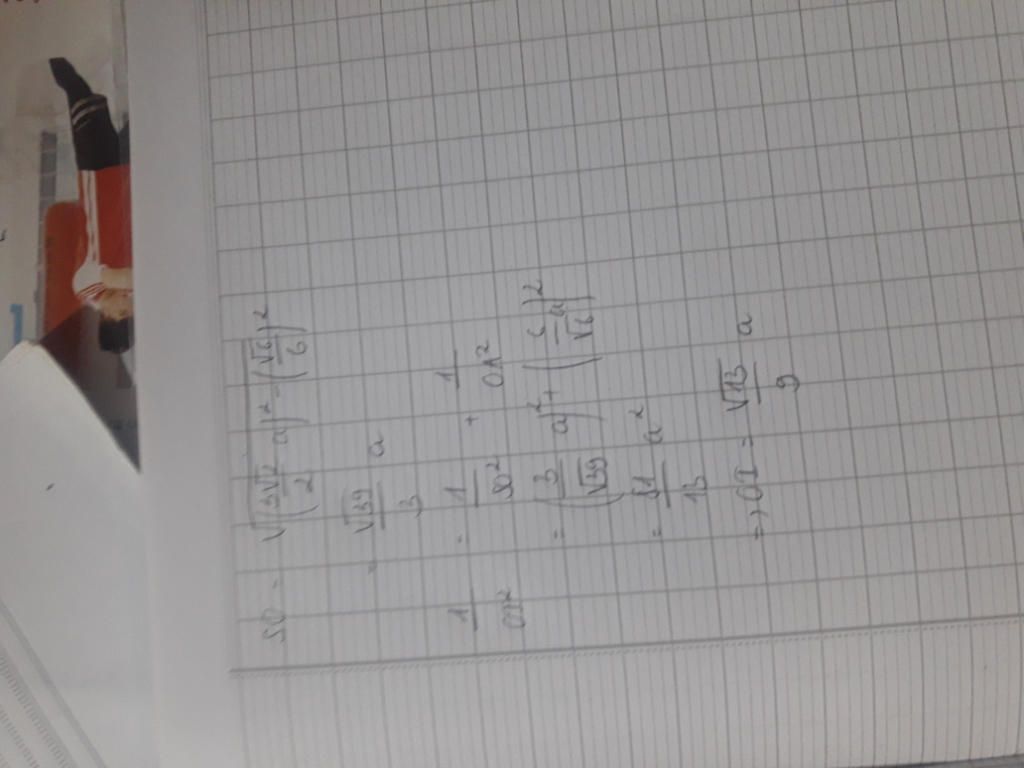 SO = √((3√2/2 a)² - (√6/6)²)
= √39/3 a
1/OI² = 1/SO² + 1/
= (3/√39 a)² + (6/√6 a)²
= 81/13 a²
=> OI = √13/9 a